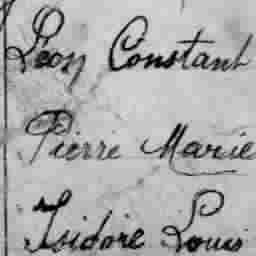 Leon Constant
Pierre Marie
Isidore Louis